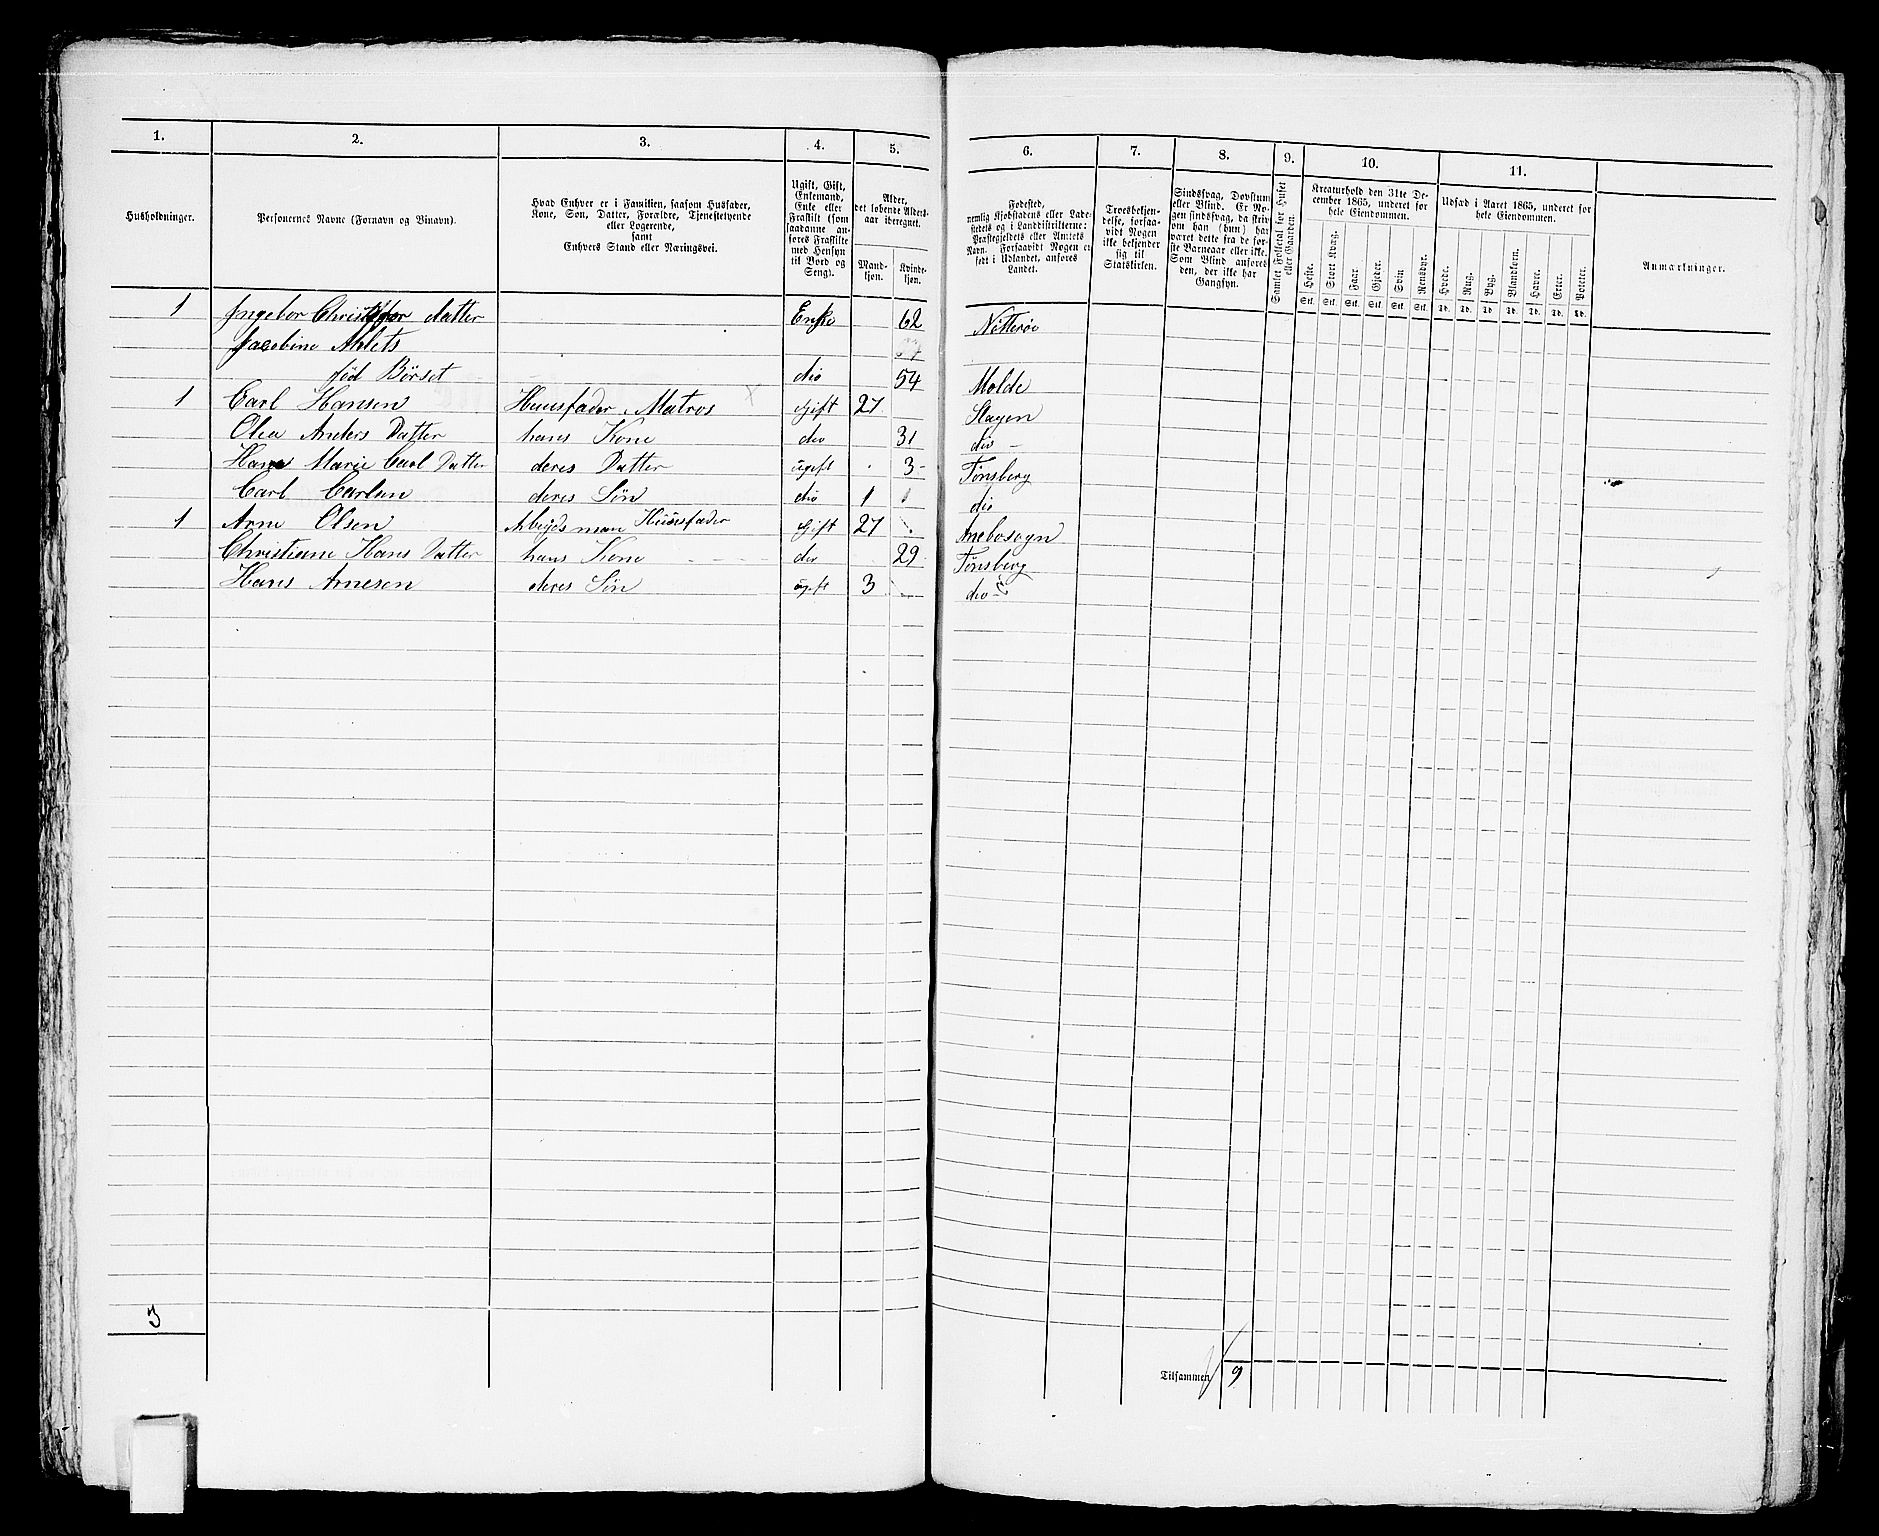 1. 2. 3. 4. 5. 6. 7. 8. 9. 10. 11.
Husholdninger.
Personernes Navne (Fornavn og Binavn).
Hvad Enhver er i Familien, saasom Husfader,
Kone, Søn, Datter, Forældre, Tjenestetyende
eller Logerende,
samt
Enhvers Stand eller Næringsvei.
Ugift, Gift,
Enkemand,
Enke eller
Fraskilt (som
saadanne an-
føres Fraskilte
med Hensyn
til Bord og
Seng).
Alder,
det løbende Alders-
aar iberegnet.
Mand-
kjøn.
Kvinde-
kjøn.
Fødested,
nemlig Kjøbstadens eller Lade-
stedets og i Landdistrikterne:
Præstegjeldets eller Amtets
Navn. Forsaavidt Nogen er
født i Udlandet, anføres
Landet.
Troesbekjen-
delse, forsaa-
vidt Nogen
ikke bekjender
sig til
Statskirken.
Sindssvag, Døvstum
eller Blind. Er No-
gen sindssvag, da skriv
om han (hun) har
været dette fra de før-
ste Barneaar eller ikke.
Som Blind anføres
den, der ikke har
Gangsyn.
Samlet Folketal for Huset
eller Gaarden.
Kreaturhold den 31te De-
cember 1865, underet for
hele Eiendommen.
Heste. Stort Kvæg. Faar. Gjeder. Svin Rensdyr.
Stk. Stk. Stk. Stk. Stk. Stk.
Udsæd i Aaret 1865, underet for
hele Eiendommen.
Hvede. Rug. Byg. Blandkorn. Havre. Erter. Poteter.
Td. Td. Td. Td. Td. Td. Td.
Anmærkninger.
1 Ingebor Christofor datter Enke 62 Nøtterøe
Jacobine Ahlets
fød Børset dio 54 Molde
1 Carl Hansen Huusfader Matros Gift 27 Slagen
Olea Anders Datter hans Kone dio 31 dio
Hane Marie Carl Datter deres Datter ugift 3 Tønsberg
Carl Carlsen deres Søn dio 1 dio
1 Arne Olsen Arbeidsman Huusfader Gift 27 Anebosogn
Christiane Hans Datter hans Kone dio 29 Tønsberg
Hans Arnesen deres Søn ugift 3 dio
3
Tilsammen 9